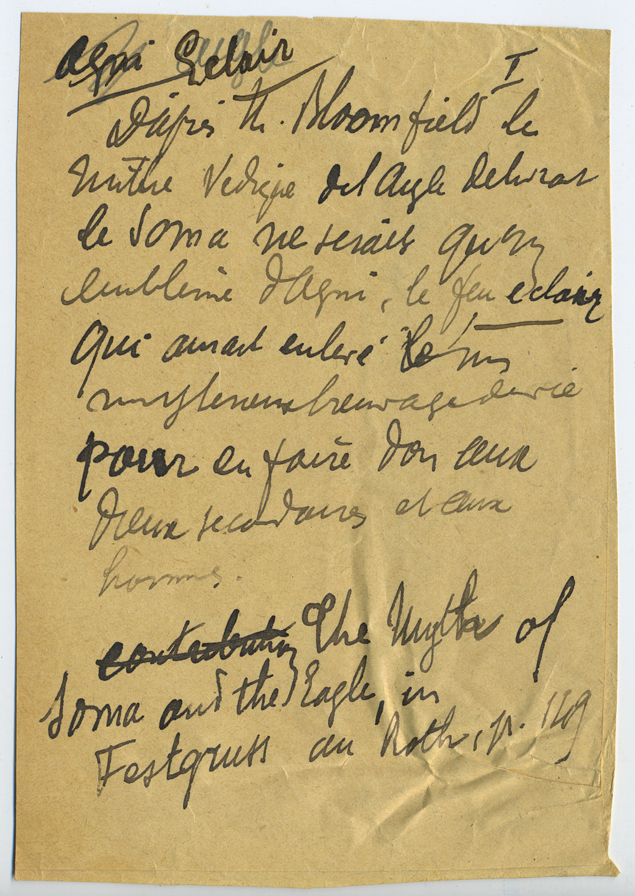 Agni Eclair
I
D'après M. Bloomfield le
mythe Vedique de l'Aigle delivrant
le Soma ne serait qu'un
emblème d'Agni, le feu eclair
qui aurait enlevé le
mysterieux breuvage de vie
pour en faire don aux
dieux secondaires et aux
hommes.
contribution The Myth of
Soma and the Eagle, in
Festgruss an Roth, p. 149